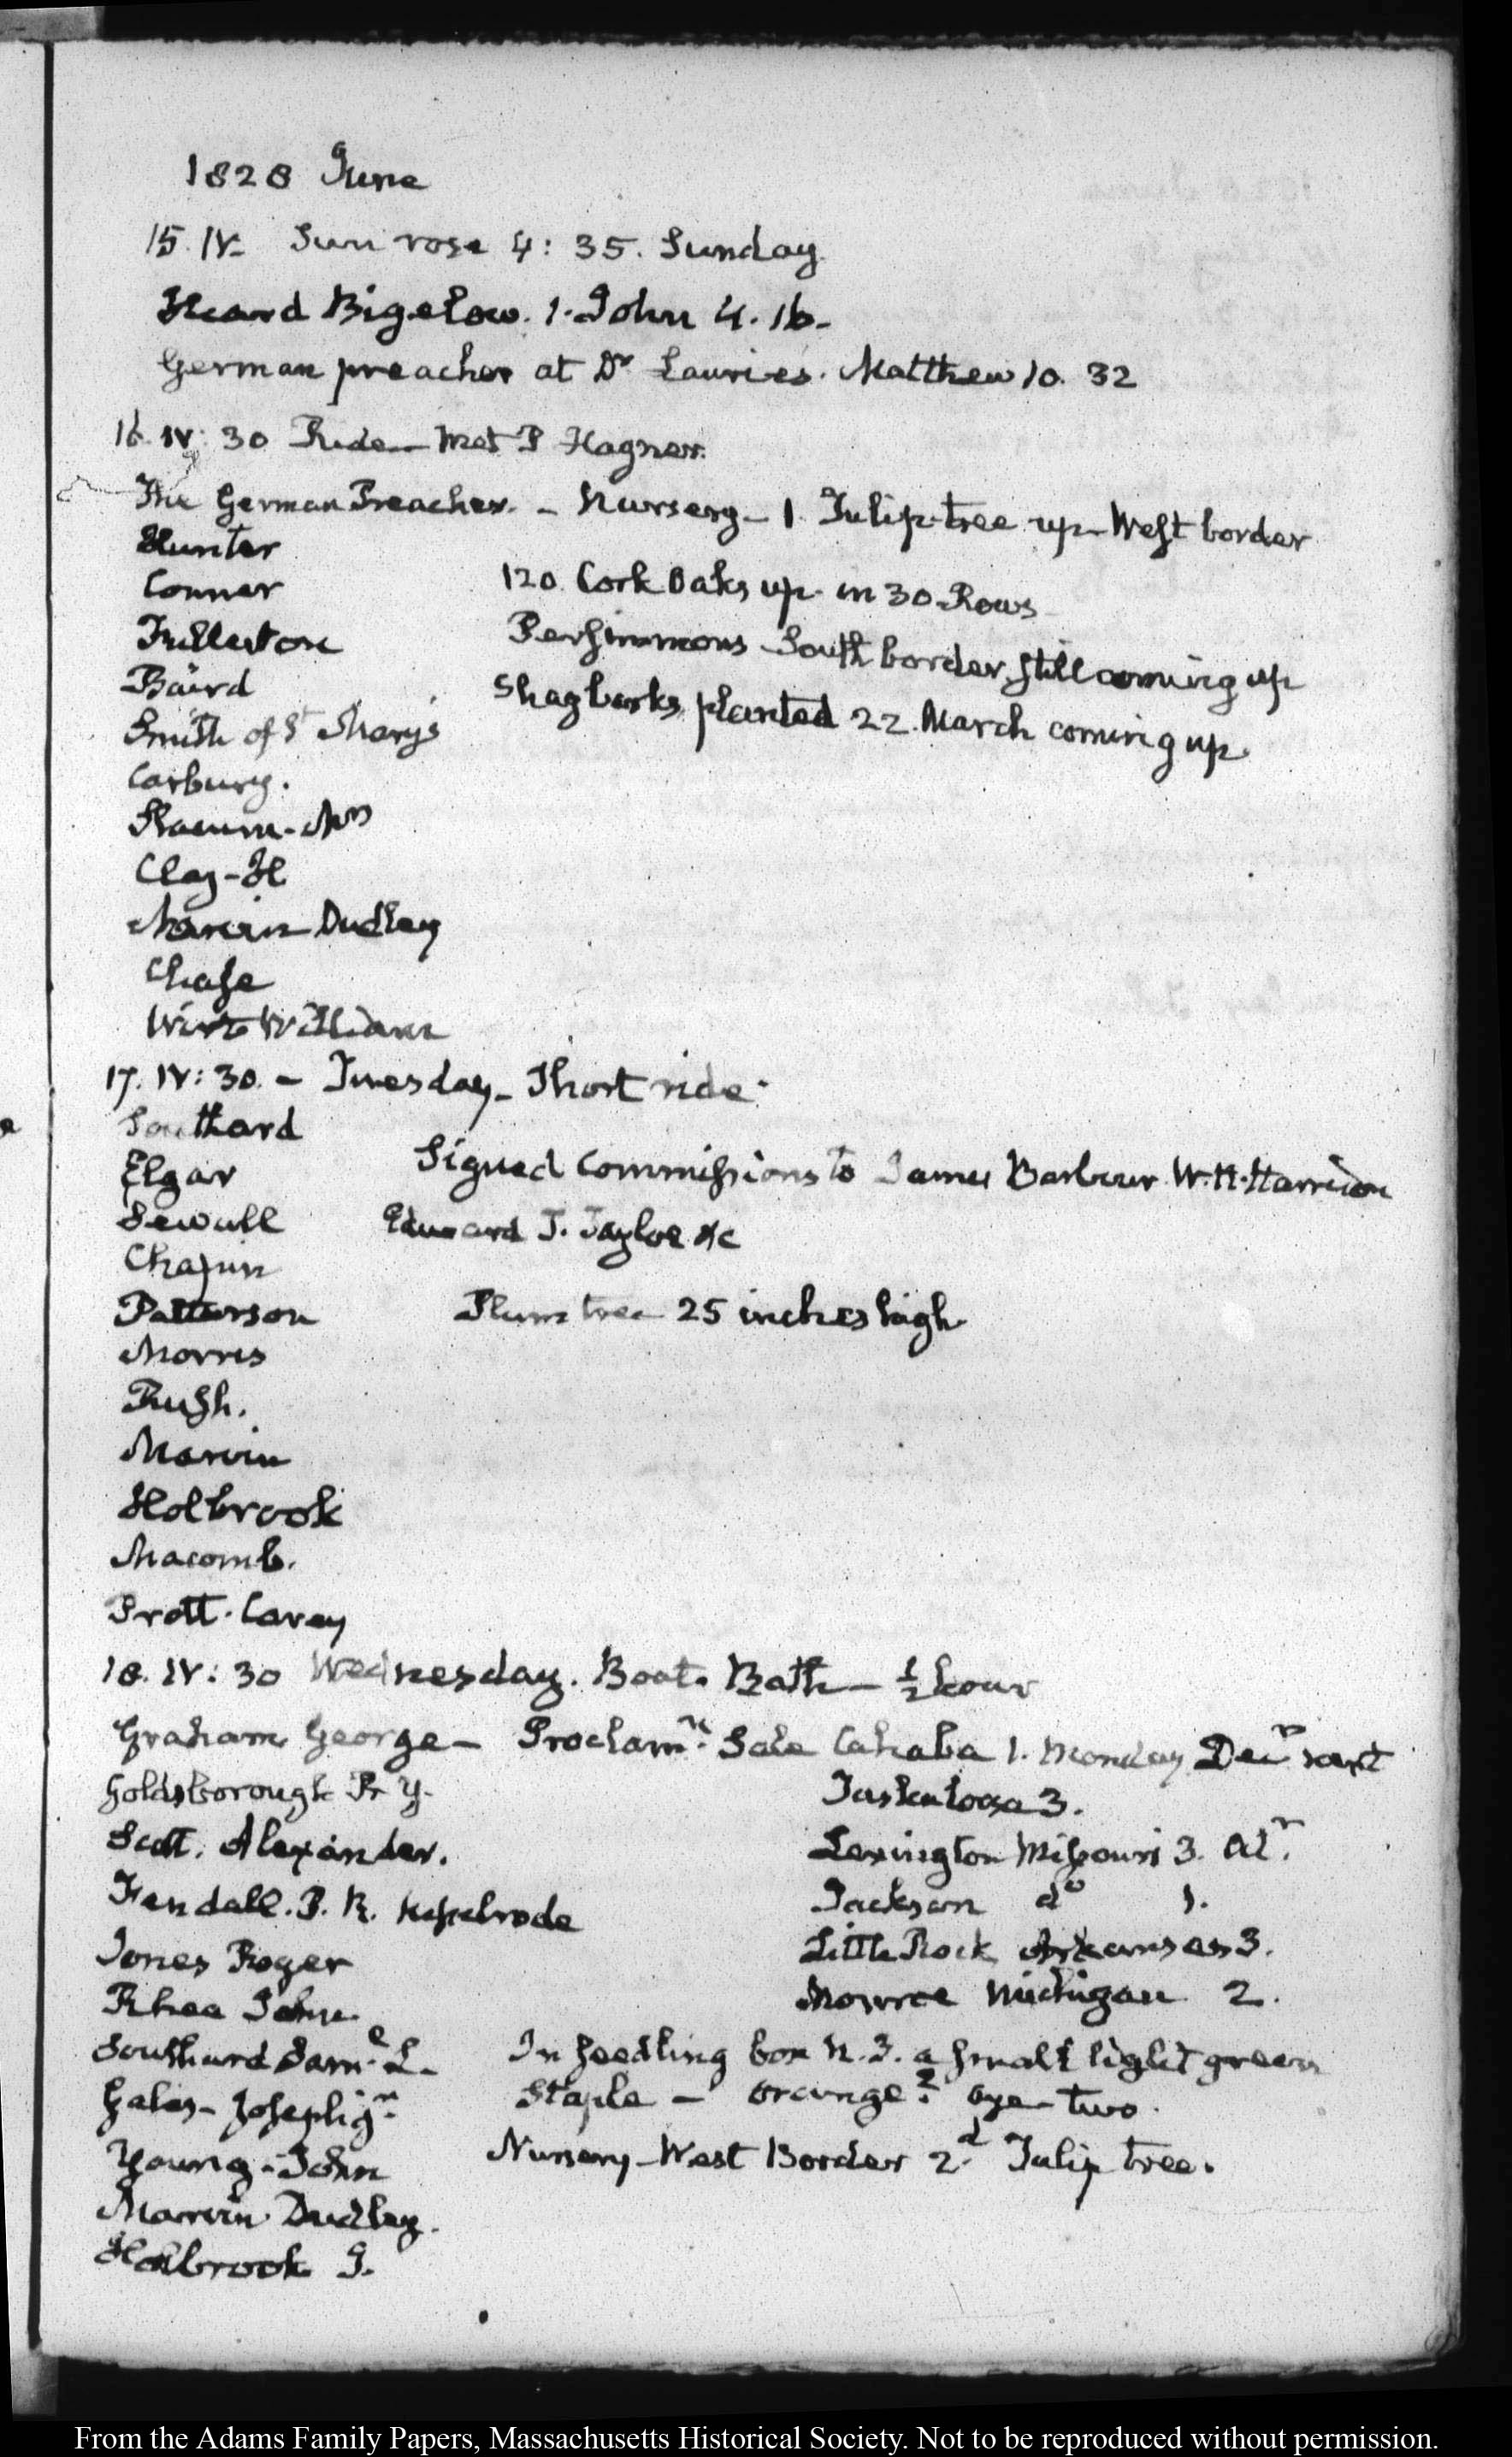 1828 June
15. IV. Sun rose 4: 35. Sunday
Heard Bigelow. 1. John 4. 16.
German preacher at Dr. Laurie's. Matthew 10. 32
16. IV: 30 Ride — Met P Hagner.
The German Preacher. — Nursery — 1. Tulip-tree up — West border
Hunter
Conner
120. Cork Oaks up. in 30 Rows
Fullerton
Persimmons South border, still coming up
Baird
Shagbarks, planted 22. March coming up.
Smith of St. Mary's
Carbury.
Slacum - Mrs
Clay - H
Marvin Dudley
Chase
Wirt William
17. IV: 30. — Tuesday — Short ride.
Southard
Elgar
Signed Commissions to James Barbour W. H. Harrison
Sewall
Edward T. Tayloe &c
Chapin
Patterson
Plum tree 25 inches high
Morris
Rush.
Marvin
Holbrook
Macomb.
Pratt. Carey
18. IV: 30 Wednesday. Boat. Bath — 1/2 hour
Graham George — Proclamn. Sale Cahaba 1. Monday Decr next
Goldsborough R. Y.
Tuskaloosa 3.
Scott. Alexander.
Lexington Missouri 3.
Kendall. P. R.
Jackson do 1.
Jones Roger
Little Rock Arkansas 3.
Rhea John
Monroe Michigan 2.
Southard Saml. L.
In seedling box N. 3. a small light green
Gales - Joseph jr.
Staple — orange? two.
Young - John
Nursery — West Border 2d. Tulip tree.
Marvin Dudley.
Holbrook J.
From the Adams Family Papers, Massachusetts Historical Society. Not to be reproduced without permission.